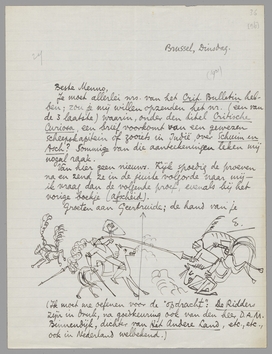 Brussel, Dinsdag.
Beste Menno,
Je moet allerlei nrs. van het Crit. Bulletin heb-
ben; zou je mij willen opzenden het nr. (een van
de 3 laatste) waarin, onder den titel Critische
Curiosa, een brief voorkomt van een gewezen
scheepskapitein of zooiets in Indië over Schuim en
Asch? Sommige van die aanteekeningen teken mij
nogal raak.
Van hier geen nieuws. Kijk spoedig de proeven
na en zend ze in de juiste volgorde naar mij —
ik vraag dan de volgende proef, evenals bij het
vorige boekje (afscheid).
Groeten aan Geertruida; de hand van je
E.
(Ik moet me oefenen voor de "opdracht". De Ridder
zijn in druk, na goedkeuring ook van den heer D.A.M.
Binnendijk, dichter van Het Andere Land, etc, etc,
ook in Nederland welbekend.)